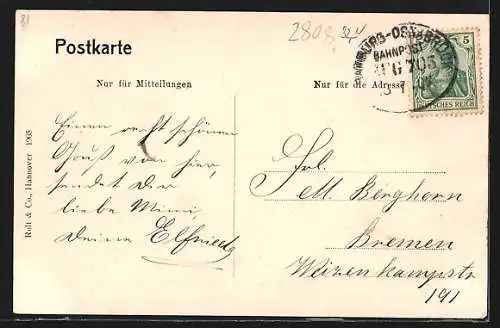 81
2808
Postkarte
HAMBURG-OSNABRÜCK
BAHNPOST
ZUG 703
5
DEUTSCHES REICH
Nur für Mitteilungen
Nur für die Adresse
Einen recht schönen
Gruß von hier,
sendet Dir
liebe Mimi,
Deine Elfriede
Frl.
M. Berghorn
Bremen
191
Rolt & Co., Hannover 1905